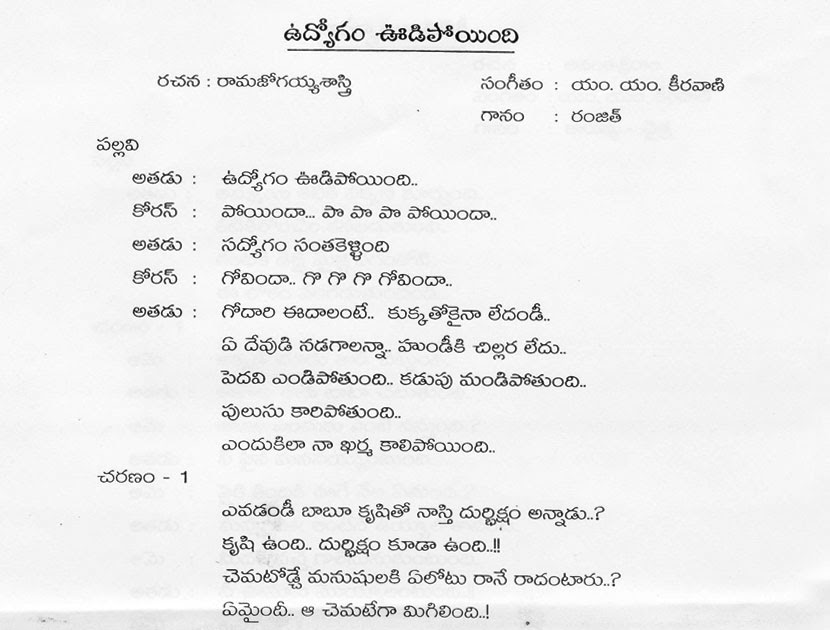 ఉద్యోగం ఊడిపోయింది
రచన : రామజోగయ్యశాస్త్రి సంగీతం : యం. యం. కీరవాణి
గానం : రంజిత్
పల్లవి
అతడు : ఉద్యోగం ఊడిపోయింది..
కోరస్ : పోయిందా... పొ పొ పొ పోయిందా..
అతడు : సద్యోగం సంతకెళ్ళింది
కోరస్ : గోవిందా.. గొ గొ గొ గోవిందా..
అతడు : గోదారి ఈదాలంటే.. కుక్కతోకైనా లేదండీ..
ఏ దేవుడి నడగాలన్నా.. హుండీకి చిల్లర లేదు..
పెదవి ఎండిపోతుంది.. కడుపు మండిపోతుంది..
పులుసు కారిపోతుంది..
ఎందుకిలా నా ఖర్మ కాలిపోయింది..
చరణం - 1
ఎవడండీ బాబూ కృషితో నాస్తి దుర్భిక్షం అన్నాడు..?
కృషి ఉంది.. దుర్భిక్షం కూడా ఉంది..!!
చెమటోడ్చే మనుషులకి ఏలోటు రానే రాదంటారు..?
ఏమైందీ.. ఆ చెమటేగా మిగిలింది..!